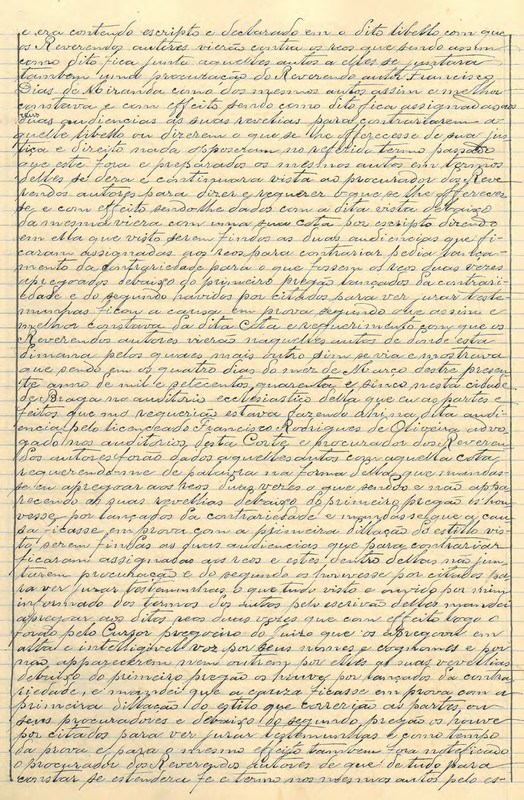 e era contendo escripto e declarado em o dito libello com que
os Reverendos autores vierão contra os reos que sendo assim
como dito fica junto aquelles autos a elles se juntara
tambem uma procuração do Reverendo autor Francisco
Dias de Miranda como dos mesmos autos assim e melhor
constava e com effeito sendo como dito fica assignadas aos reos
duas audiencias ás suas revelias para contrariarem a
quelle libello ou dizerem o que se lhe offerecesse de sua jus
tiça e direito nada oposeram no referido termo passado
que este fora e preparados os mesmos autos em termos
delles se dera e continuara vista ao procurador dos Reve
rendos autores para dizer e requerer o que se lhe offereces
se, e com effeito sendo lhe dados com a dita vista debaixo
da mesma viera com uma sua cota por escripto dizendo
em ella que visto serem findos as duas audiencias que fi
caram assignadas aos reos para contrariar pedia lança-
mento da contrariedade para o que fossem os reos duas vezes
apregoados debaixo do primeiro pregão lançados da contrari-
edade e do segundo havidos por citados para ver jurar teste-
munhas ficou a causa em prova segundo que assim e
melhor constava da dita cota e requerimento com que os
Reverendos autores vierão naquelles autos de donde esta
dimana pelos quaes mais outro sim se via e mostrava
que sendo em os quatro dias do mez de Março deste presen-
te anno de mil e setecentos quarenta e cinco nesta cidade
de Braga no auditorio ecclesiastico della que eu as partes e
feitos que me requerião estava fazendo ahi na dita audi-
encia pelo licenceado Francisco Rodrigues de Oliveira advo
gado nos auditorios desta Corte e procurador dos Reveren
dos autores forão dados aquelles autos com aquella cota
requerendo-me de palavra na forma della que mandas-
se eu apregoar aos reos duas vezes o que sendo e não appa
recendo ás suas revelias debaixo do primeiro pregão os hou
vesse por lançados da contrariedade e mandasse que a cau
sa ficasse em prova com a primeira dillação do estillo vis
to serem findas as duas audiencias que para contrariar
ficaram assignadas aos reos e estes dentro dellas não jun
tarem procuração e do segundo os houvesse por citados pa
ra ver jurar testemunhas, o que tudo visto e ouvido por mim
informado dos termos dos autos pelo escrivão delles mandei
apregoar aos ditos reos duas vezes que com effeito logo o
forão pelo Cursor pregoeiro do juizo que os apregoou em
alta e intelligivel voz por seus nomes e cognomes e por
não apparecerem nem outrem por elles ás suas revelias
debaixo do primeiro pregão os houve por lançados da contra
riedade, e mandei que a cauza ficasse em prova com a
primeira dillação do estilo que correrião as partes, ou
seus procuradores e debaixo do segundo pregão os houve
por citados para ver jurar testemunhas e como tempo
da prova e para o mesmo effeito tambem fora notificado
o procurador dos Reverendos autores de que de tudo para
constar se estendera fé e termo nos mesmos autos pelo es-